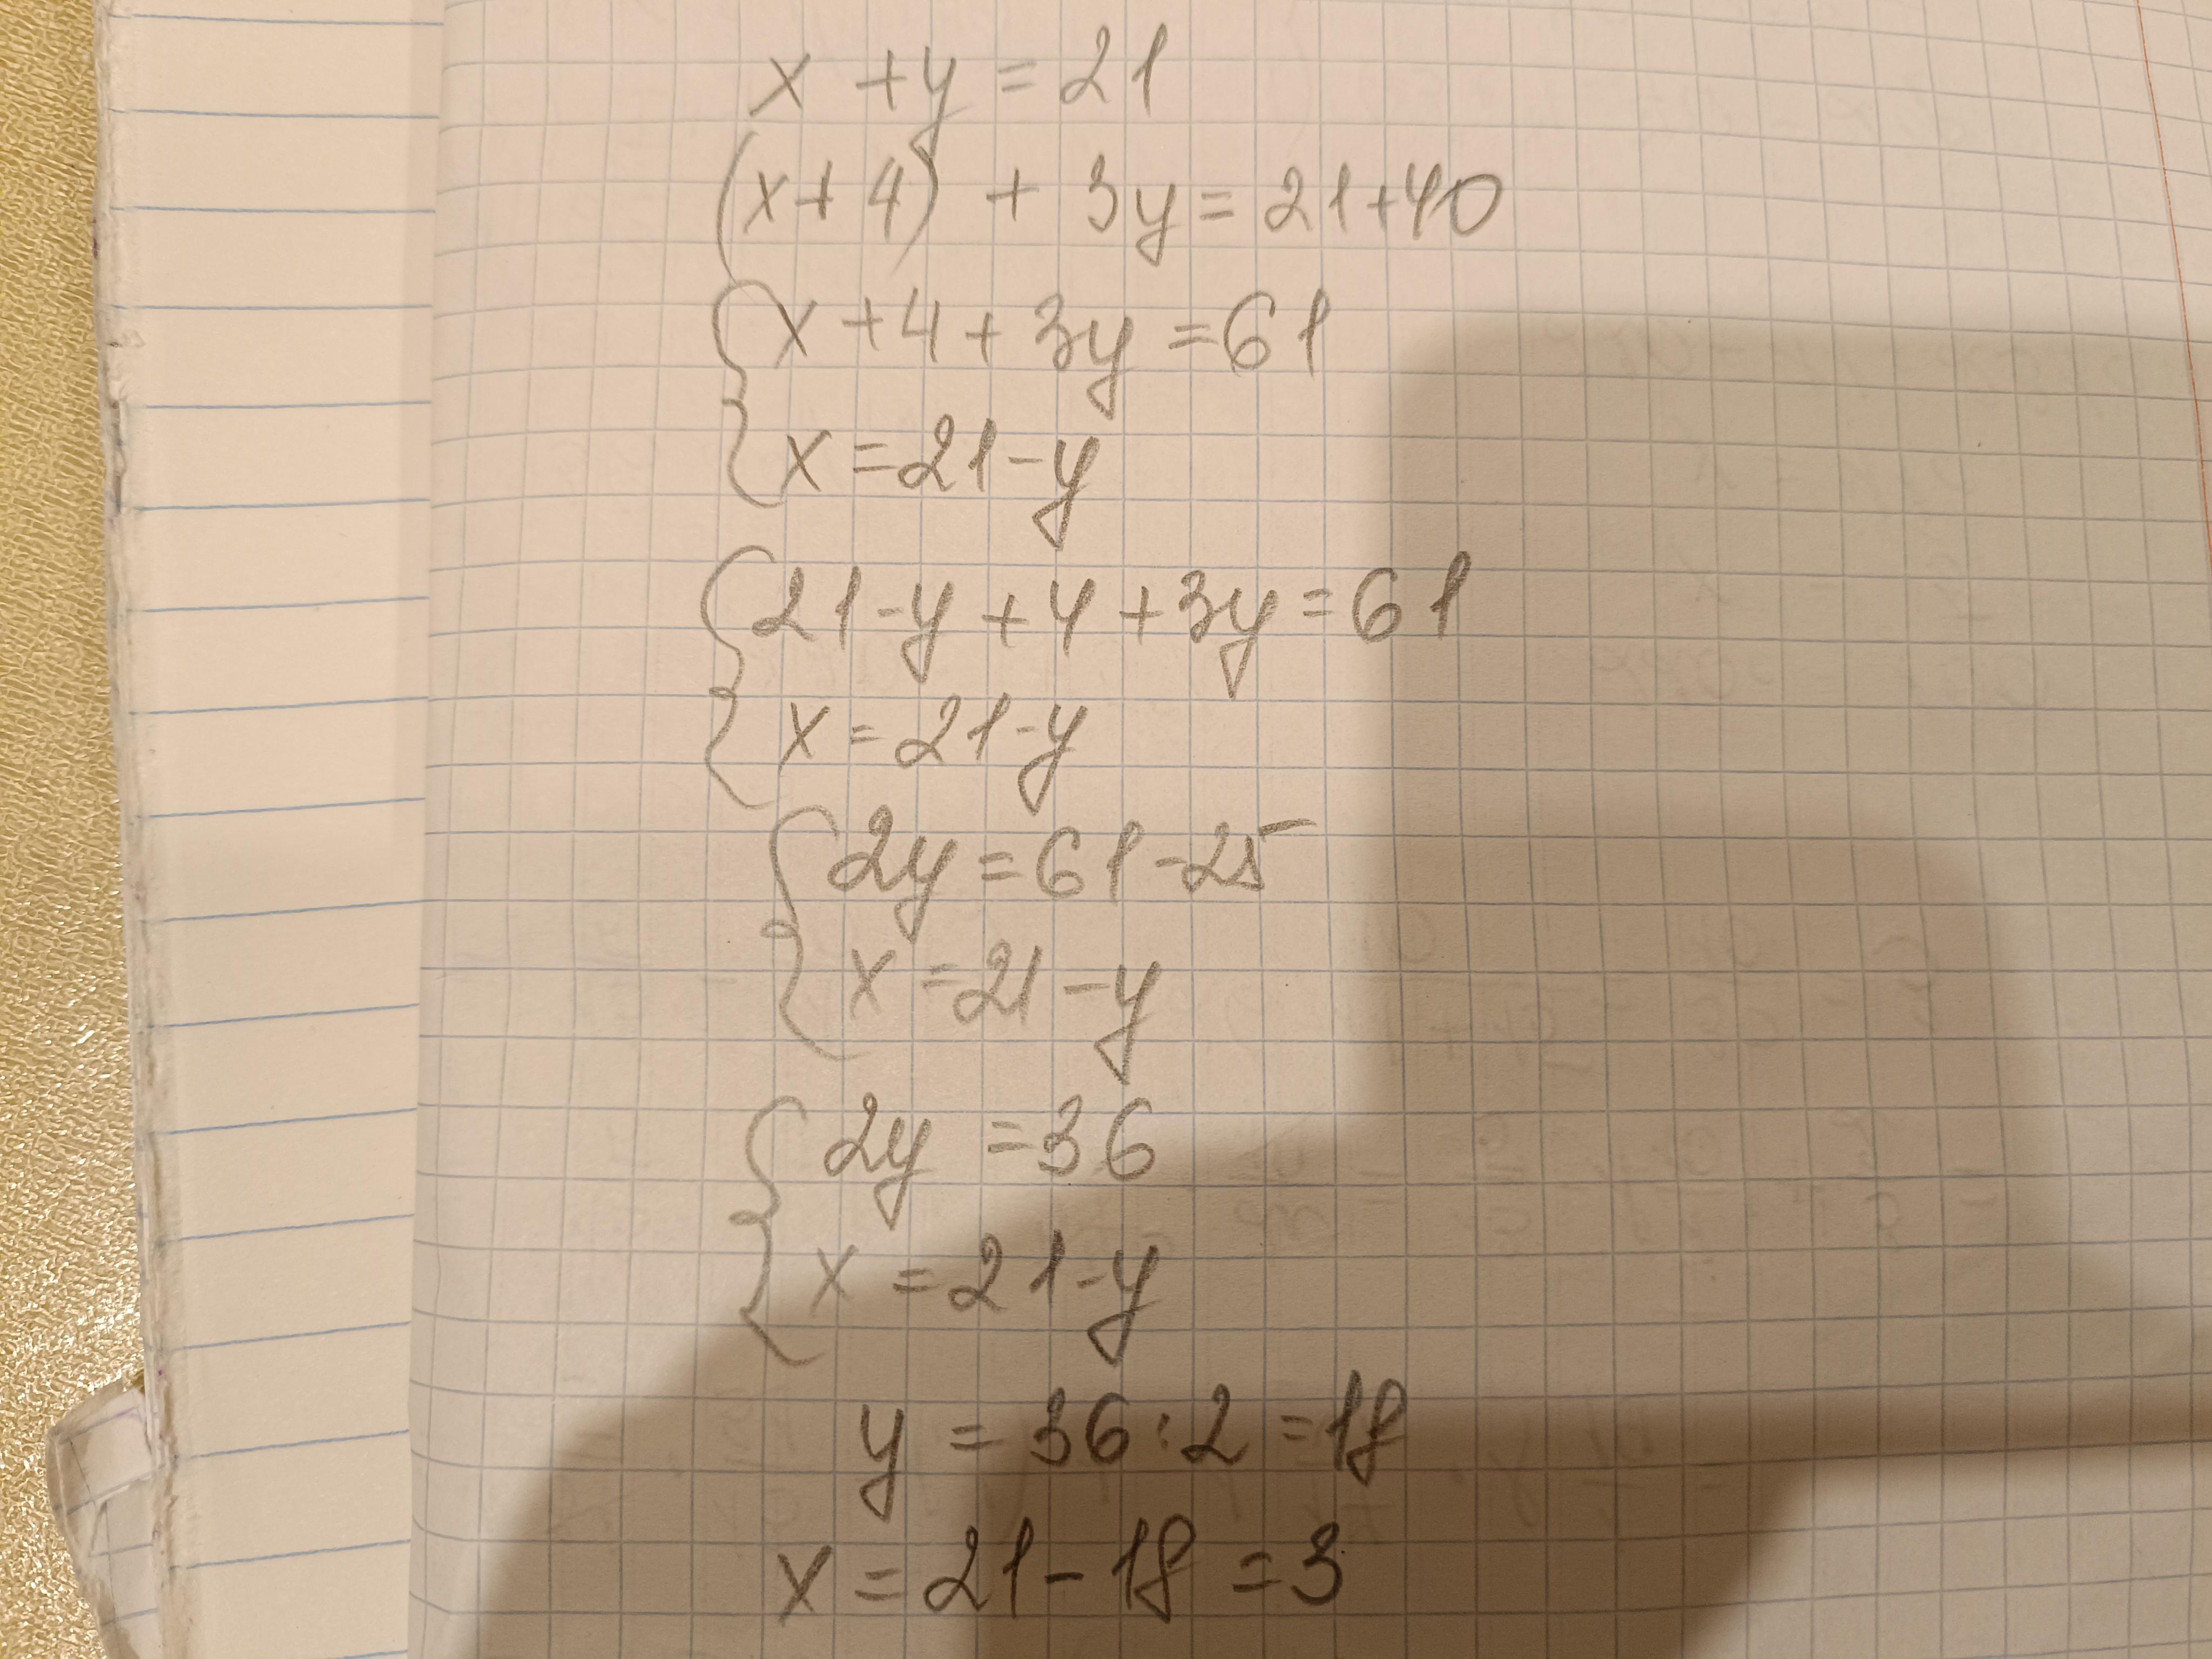 x + y = 21
(x + 4) + 3y = 21 + 40
{ x + 4 + 3y = 61
x = 21 - y
{ 21 - y + 4 + 3y = 61
x = 21 - y
{ 2y = 61 - 25
x = 21 - y
{ 2y = 36
x = 21 - y
y = 36 : 2 = 18
x = 21 - 18 = 3